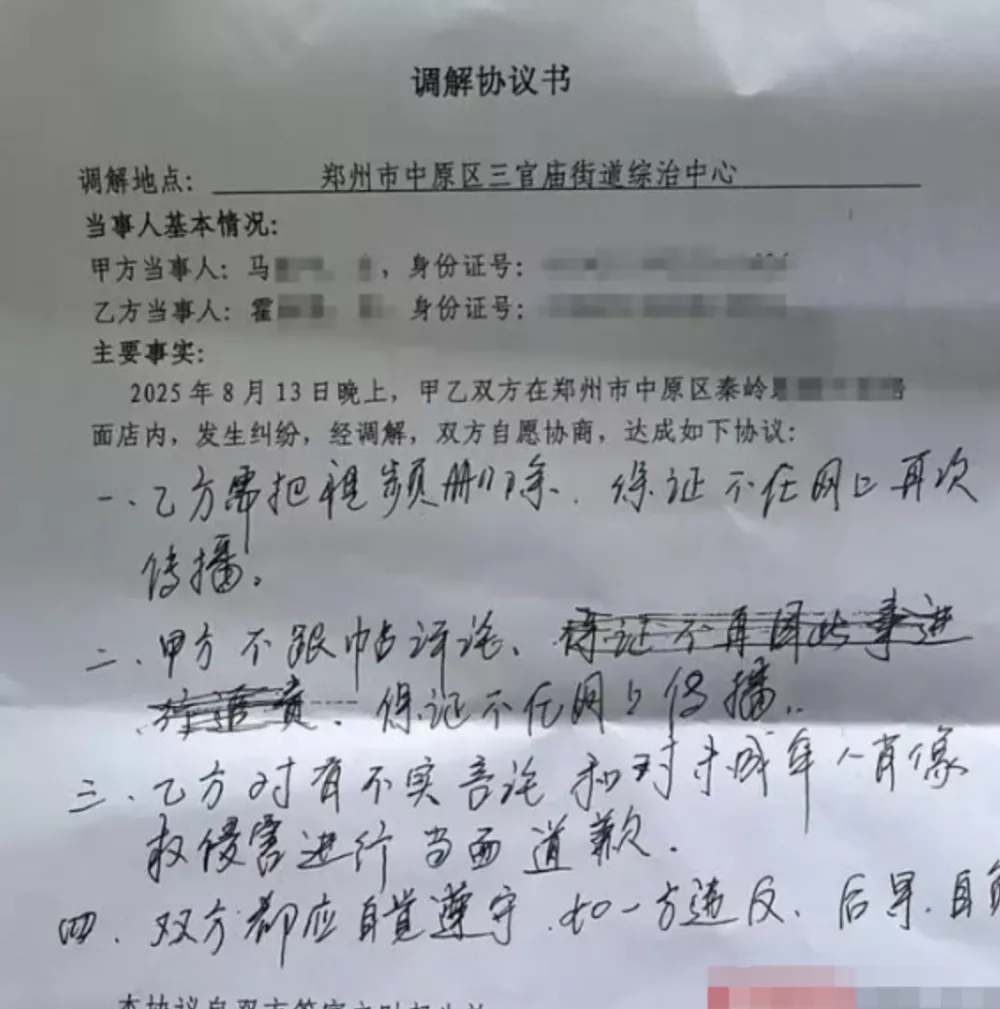 调解协议书
调解地点： 郑州市中原区三官庙街道综治中心
当事人基本情况：
甲方当事人：马 ，身份证号：
乙方当事人：霍 身份证号：
主要事实：
2025年8月13日晚上，甲乙双方在郑州市中原区秦岭
面店内，发生纠纷，经调解，双方自愿协商，达成如下协议：
一、乙方需把视频删除．保证不在网上再次
传播。
二、甲方不跟帖评论、保证不再因此事进
行追责．保证不在网上传播．
三、乙方对有不实言论和对未成年人肖像
权侵害进行当面道歉．
四、双方都应自觉遵守．如一方违反、后果．自负
本协议自双方签字之时起生效